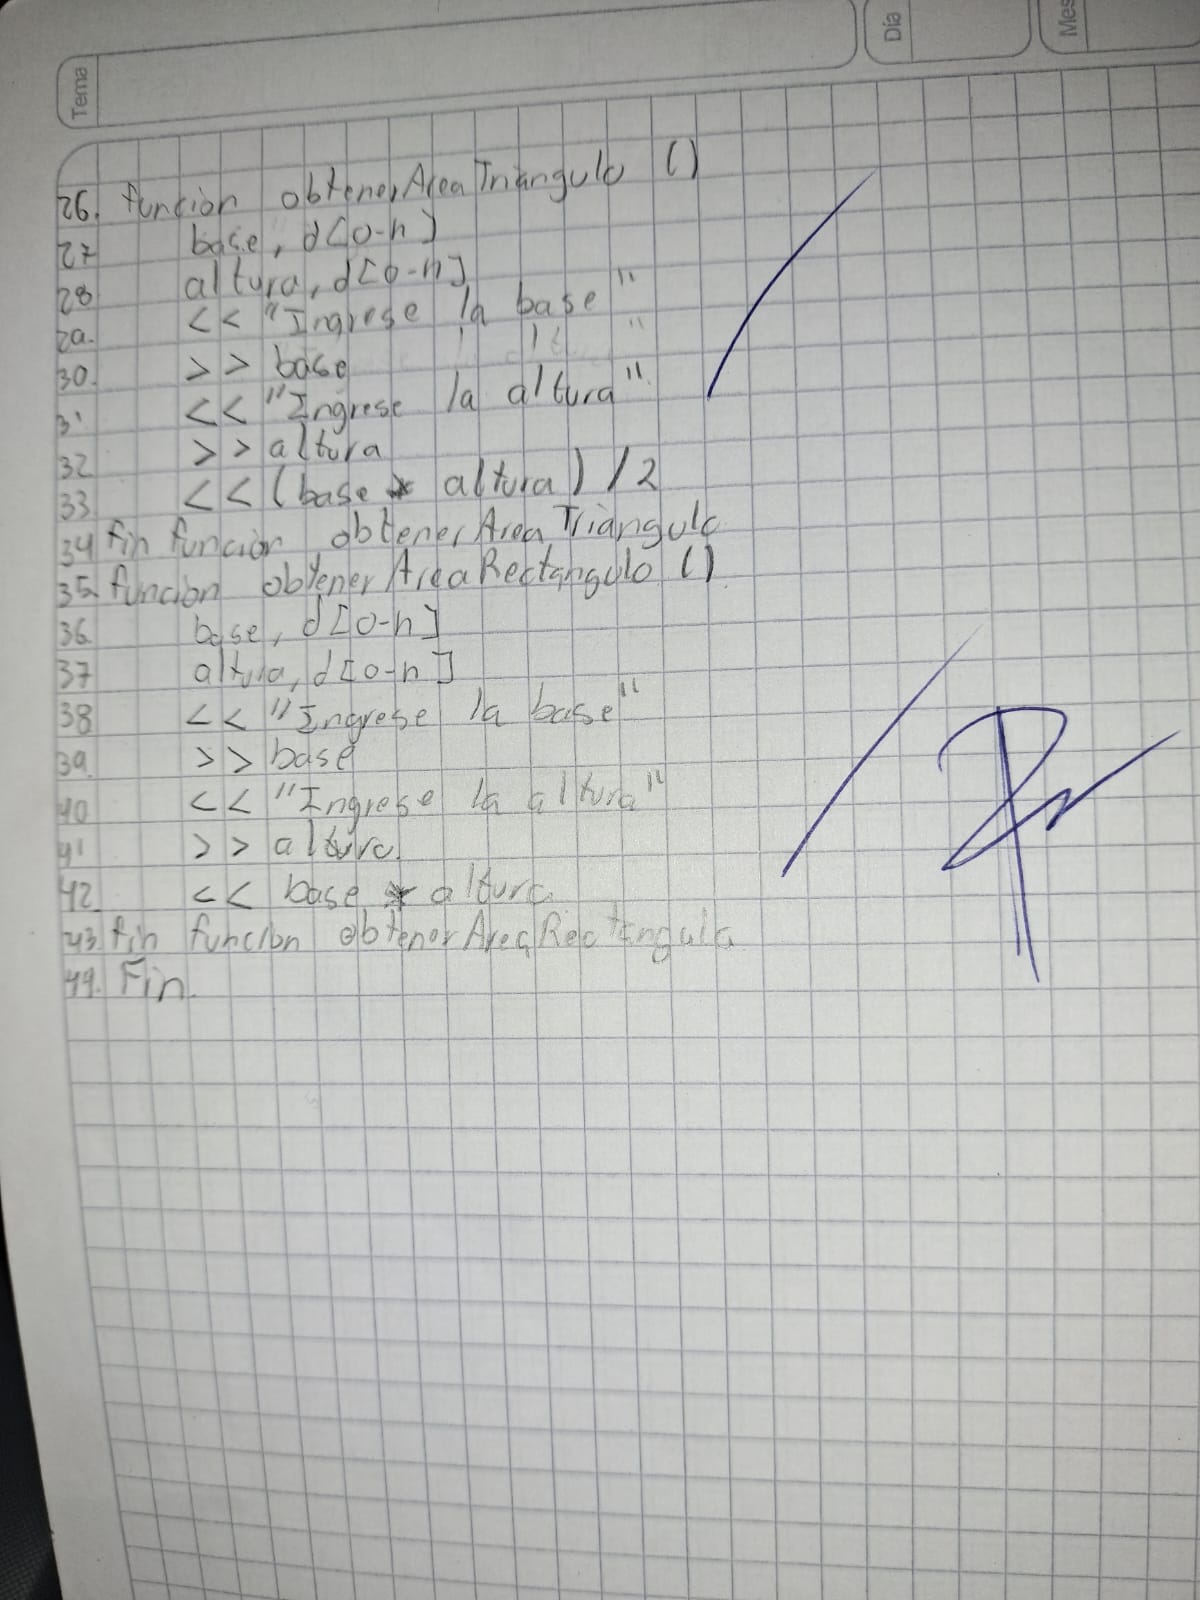 Tema
Día
Mes
26. función obtenerAreaTriangulo ()
27 base, d[0-n]
28 altura, d[0-n]
29. << "Ingrese la base"
30. >> base
31 << "Ingrese la altura"
32 >> altura
33 << (base * altura) /2
34 fin función obtenerAreaTriangulo
35. función obtenerAreaRectangulo ()
36 base, d[0-n]
37 altura, d[0-n]
38 << "Ingrese la base"
39 >> base
40 << "Ingrese la altura"
41 >> altura
42 << base * altura
43. fin función obtenerAreaRectangulo
44. Fin.